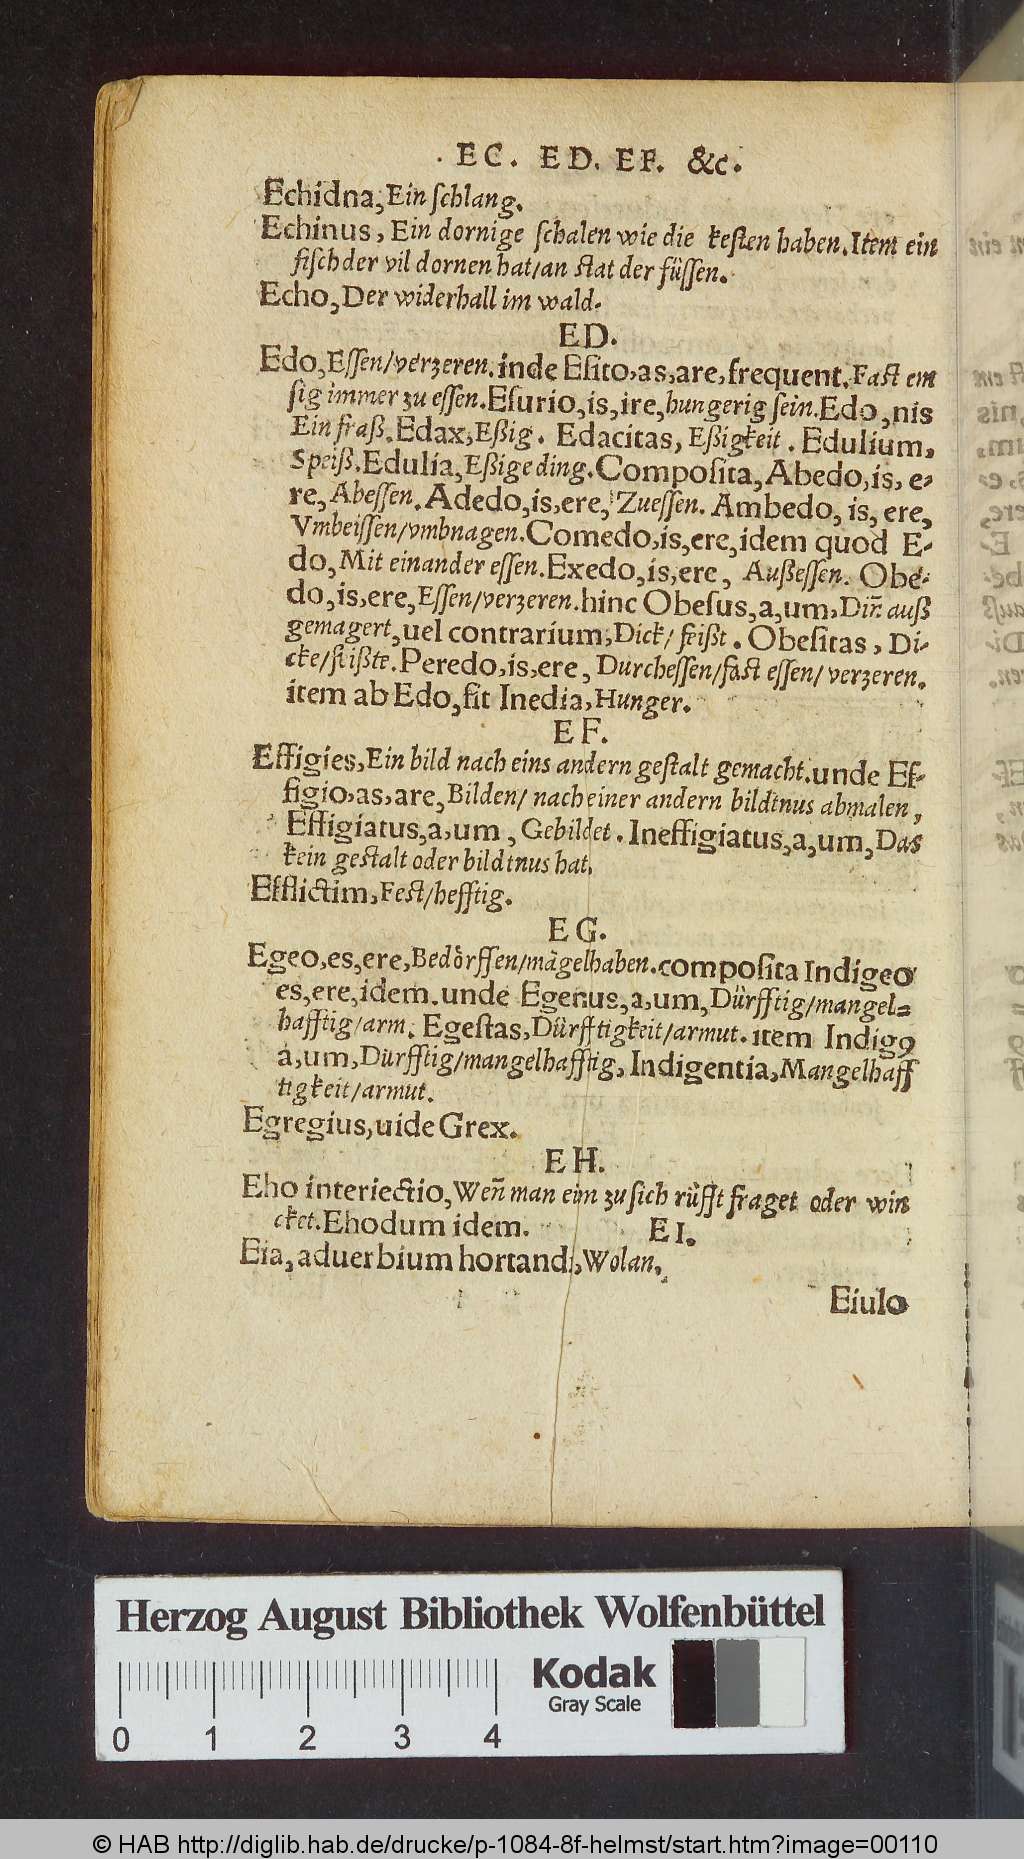 EC. ED. EF. &c.
Echidna, Ein ſchlang.
Echinus, Ein dornige ſchalen wie die keſten haben. Item ein
fiſch der vil dornen hat/an ſtat der füſſen.
Echo, Der widerhall im wald.
ED.
Edo, Eſſen/verzeren. inde Eſito, as, are, frequent. Faſt em
ſig immer zu eſſen. Eſurio, is, ire, hungerig ſein. Edo, nis
Ein fraß. Edax, Eßig. Edacitas, Eßigkeit. Edulium,
Speiß. Edulia, Eßige ding. Compoſita, Abedo, is, e-
re, Abeſſen. Adedo, is, ere, Zueſſen. Ambedo, is, ere,
Vmbeiſſen/vmbnagen. Comedo, is, ere, idem quod E-
do, Mit einander eſſen. Exedo, is, ere, Außeſſen. Obe-
do, is, ere, Eſſen/verzeren. hinc Obeſus, a, um, Dirr̄ auß
gemagert, uel contrarium, Dick/ feißt. Obeſitas, Di-
cke/feißte. Peredo, is, ere, Durcheſſen/faſt eſſen/verzeren.
item ab Edo, fit Inedia, Hunger.
EF.
Effigies, Ein bild nach eins andern geſtalt gemacht. unde Ef-
figio, as, are, Bilden/ nach einer andern bildtnus abmalen,
Effigiatus, a, um, Gebildet. Ineffigiatus, a, um, Das
kein geſtalt oder bildtnus hat.
Efflictim, Feſt/hefftig.
EG.
Egeo, es, ere, Bedörffen/mãgelhaben. compoſita Indigeo
es, ere, idem. unde Egenus, a, um, Dürfftig/mangel=
hafftig/arm. Egeſtas, Dürfftigkeit/armut. item Indigꝯ
a, um, Dürfftig/mangelhafftig, Indigentia, Mangelhaff
tigkeit/armut.
Egregius, uide Grex.
EH.
Eho interiectio, Wen̄ man eim zu ſich rüfft fraget oder win
cket. Ehodum idem. EI.
Eia, aduerbium hortandi, Wolan,
Eiulo
Herzog August Bibliothek Wolfenbüttel
Kodak
Gray Scale
0 1 2 3 4
© HAB http://diglib.hab.de/drucke/p-1084-8f-helmst/start.htm?image=00110